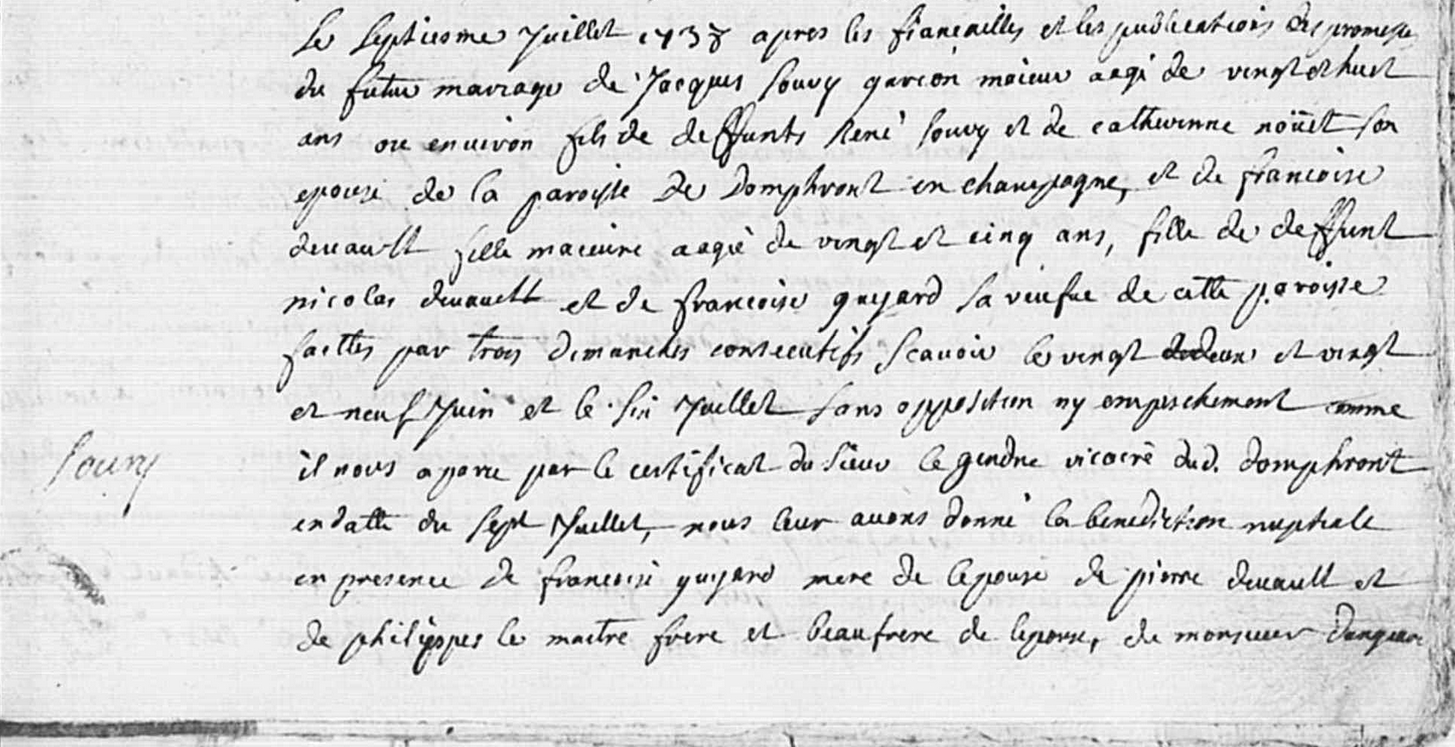 Le septiesme Juillet 1738 apres les fiançailles et les publications des promesses
du futur mariage de Jacques Souvy garçon maieur aagé de vingt et huit
ans ou environ fils de deffunts René Souvy et de catherinne noüet son
epouse de la paroisse de Domphront en champagne, et de francoise
devault fille maieure aagée de vingt et cinq ans, fille de deffunt
nicolas devault et de francoise guyard sa veufve de cette paroisse
faittes par trois dimanches consecutifs scavoir le vingt deux et vingt
et neuf Juin et le six Juillet sans opposition ny empeschement comme
il nous a paru par le certificat du sieur le gendre vicaire dud. domphront
en datte du sept Juillet, nous leur avons donné la benediction nuptiale
en presence de francoise guyard mere de l'epouse de pierre devault et
de philippes le maitre frere et beaufrere de l'epouse, de monsieur
Souvy